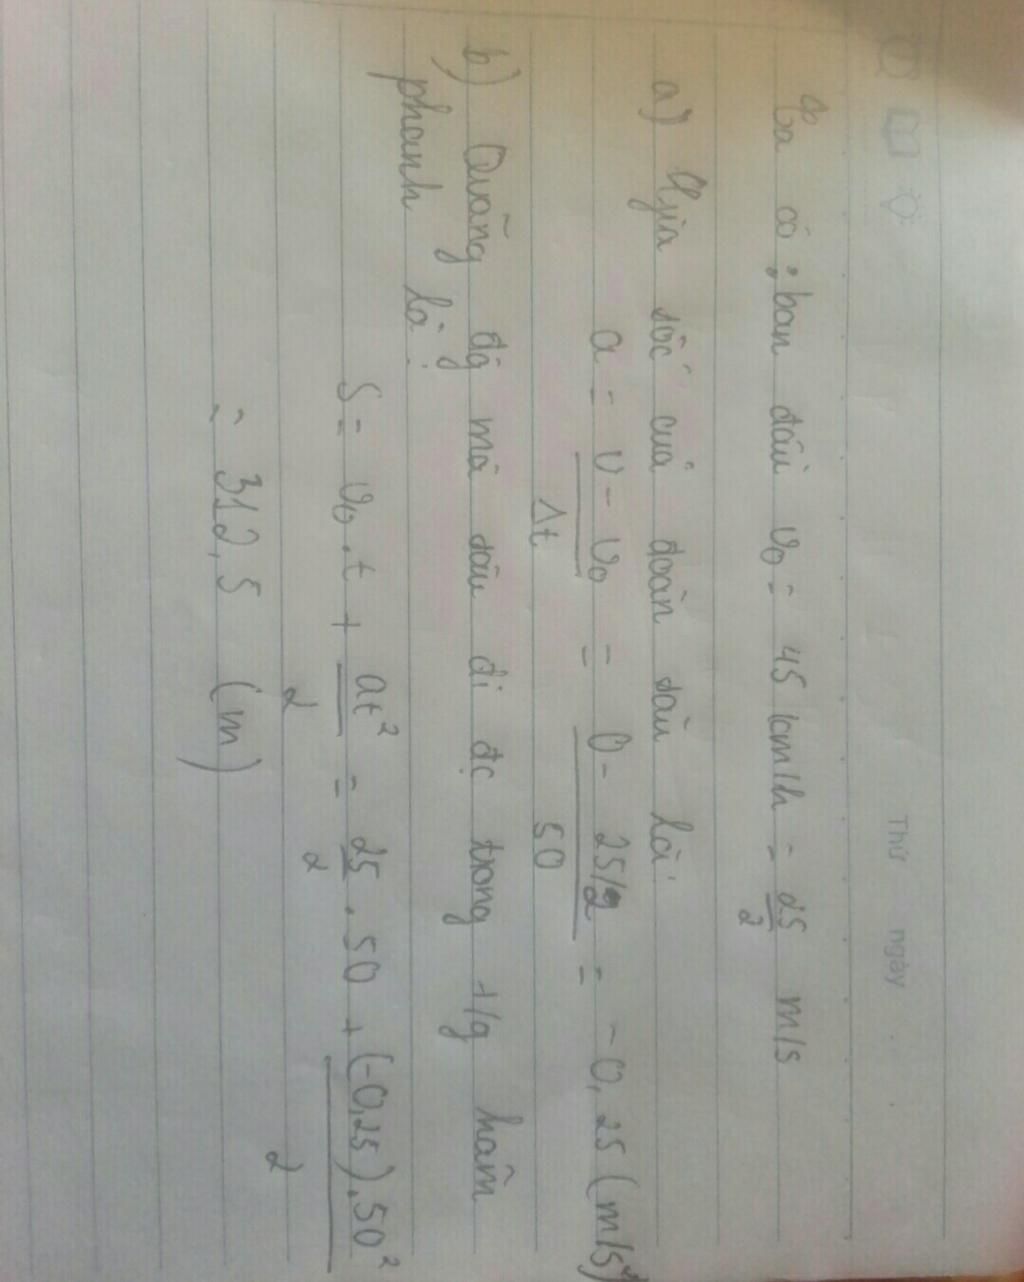 Thứ ngày
Ta có : ban đầu v₀ = 45 km/h = 25/2 m/s
a) Gia sốc của đoàn tàu là:
a = (v - v₀)/Δt = (0 - 25/2)/50 = -0,25 (m/s²)
b) Quãng đg mà tàu đi đc trong t/g hãm
phanh là:
S = v₀.t + at²/2 = 25/2 . 50 + (-0,25).50²/2
= 312,5 (m)